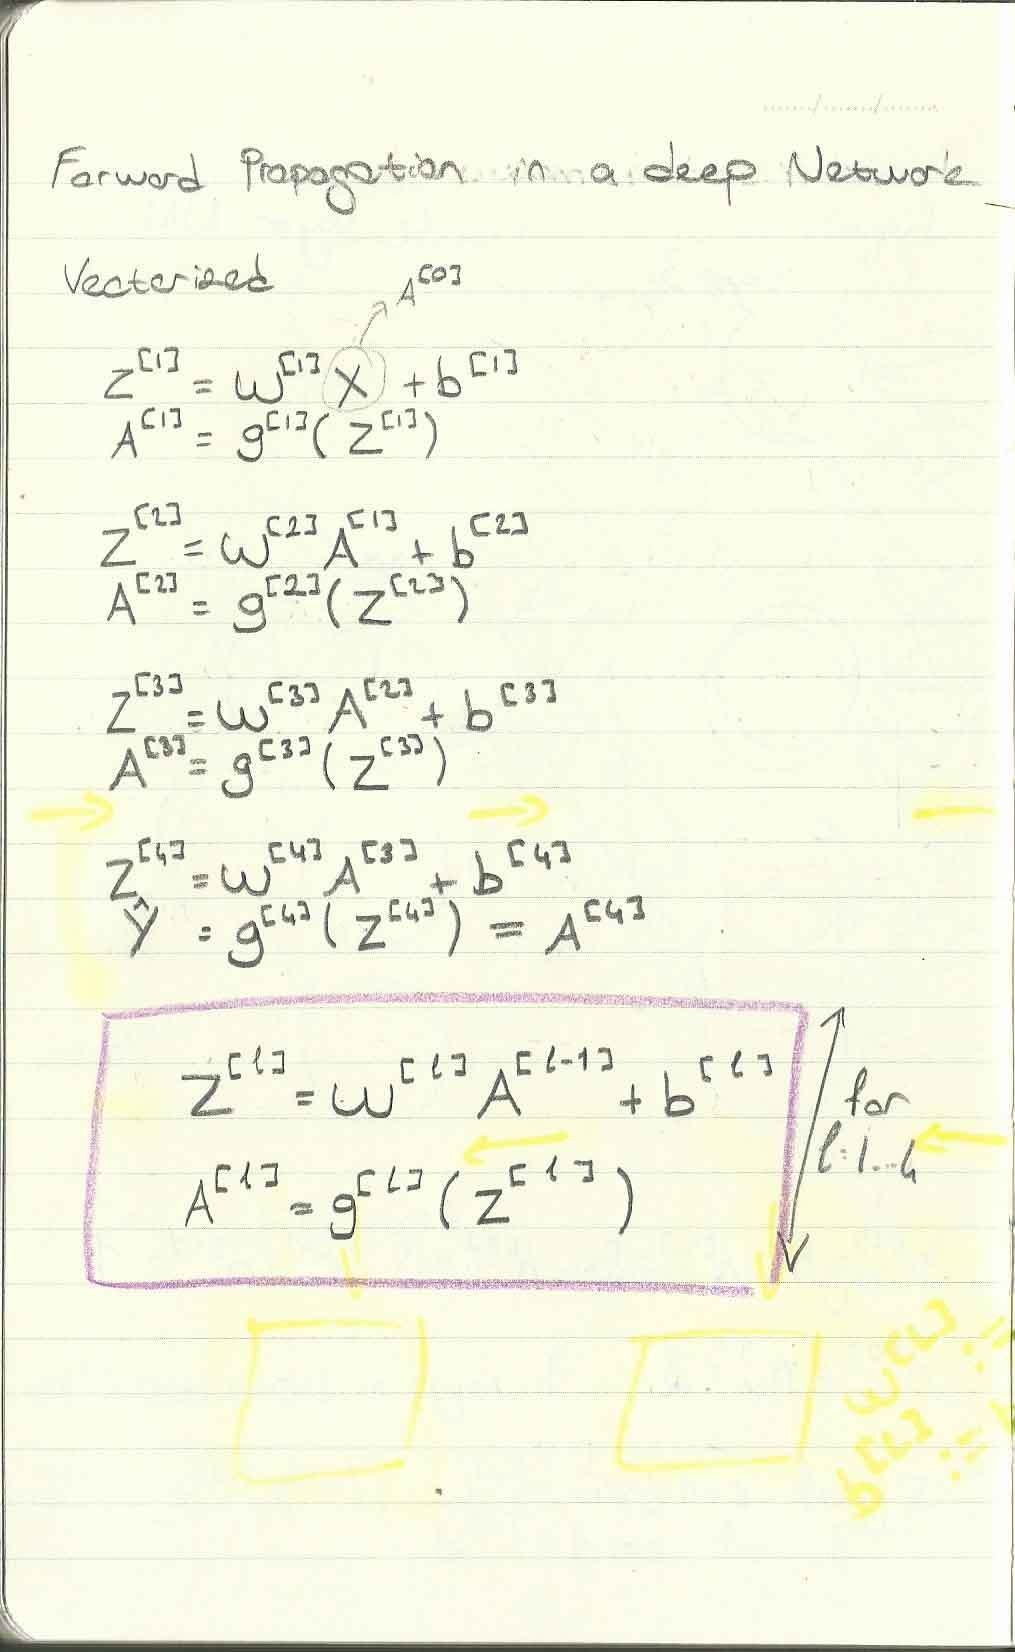 Forward Propagation in a deep Network
Vectorized
A^[0]
Z^[1] = W^[1] X + b^[1]
A^[1] = g^[1] (Z^[1])
Z^[2] = W^[2] A^[1] + b^[2]
A^[2] = g^[2] (Z^[2])
Z^[3] = W^[3] A^[2] + b^[3]
A^[3] = g^[3] (Z^[3])
Z^[4] = W^[4] A^[3] + b^[4]
Ŷ = g^[4] (Z^[4]) = A^[4]
Z^[l] = W^[l] A^[l-1] + b^[l]
A^[l] = g^[l] (Z^[l])
for
l=1..4
W^[L] :=
b^[L] :=